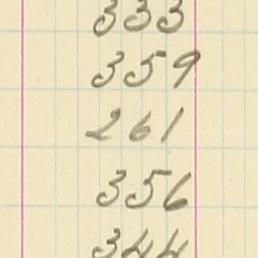 333
359
261
356
344